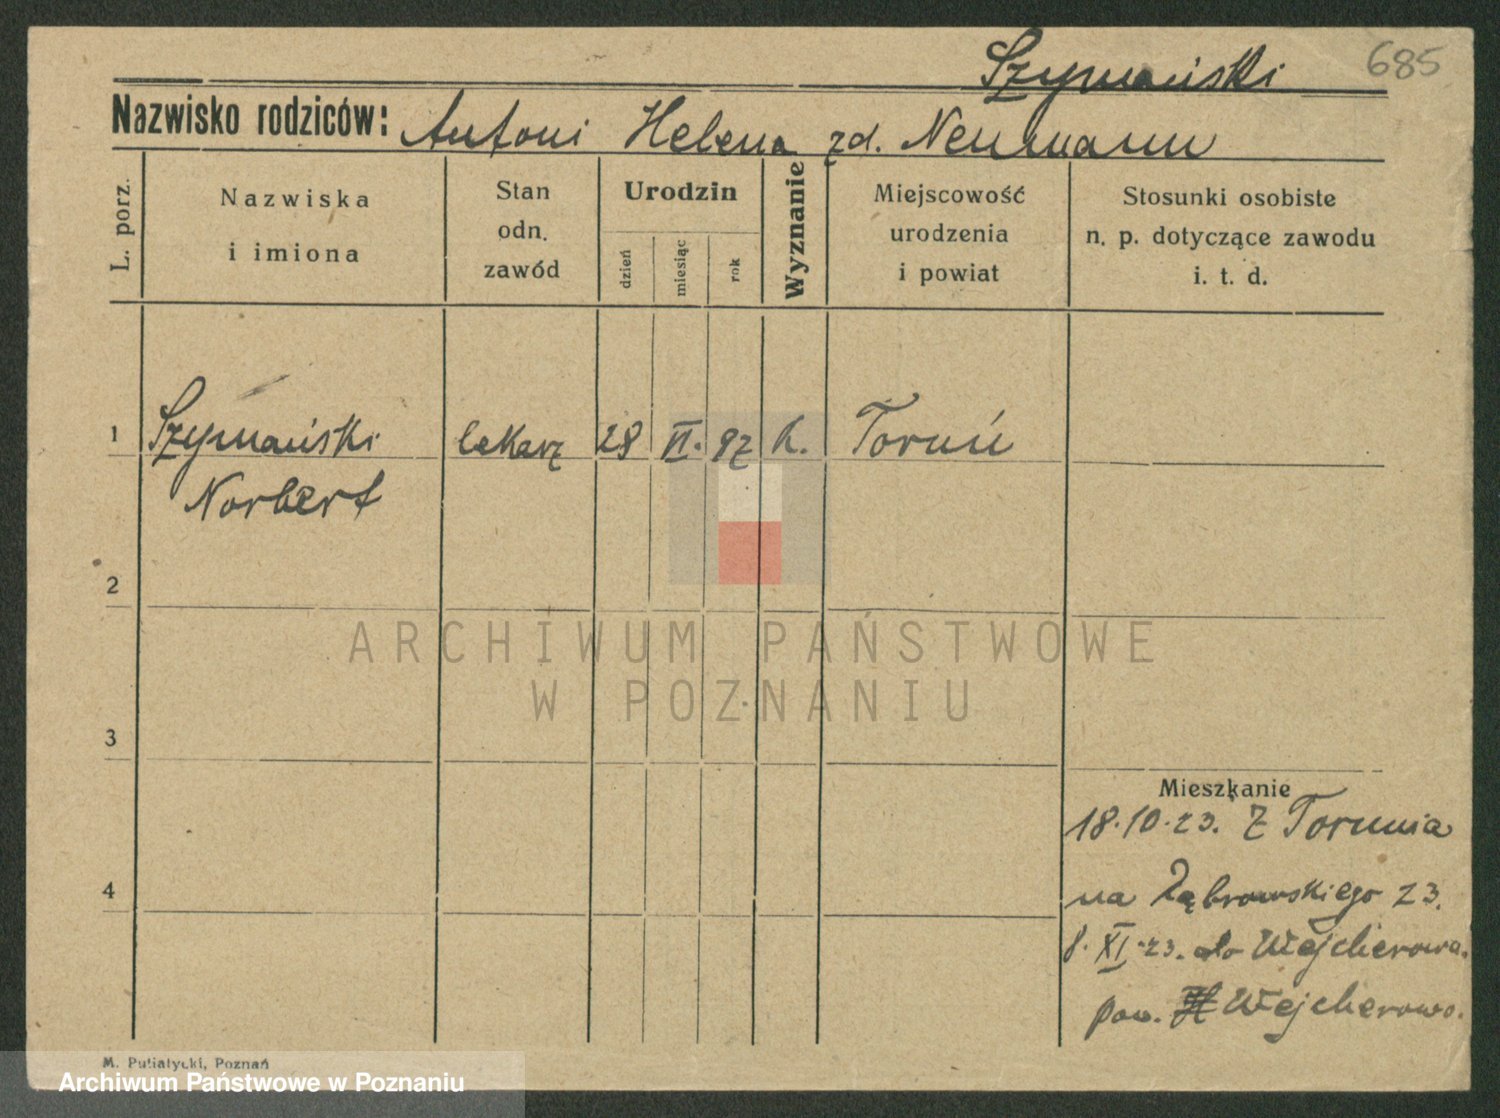 Szymański 685
Nazwisko rodziców: Antoni Helena zd. Neumann
L. porz.
Nazwiska
i imiona
Stan
odn.
zawód
Urodzin
dzień
miesiąc
rok
Wyznanie
Miejscowość
urodzenia
i powiat
Stosunki osobiste
n. p. dotyczące zawodu
i. t. d.
1 Szymański lekarz 28 VI. 97 k. Toruń
Norbert
2
ARCHIWUM PAŃSTWOWE
W POZNANIU
3
Mieszkanie
18.10.23. Z Torunia
4
na Dąbrowskiego 23.
8. XI. 23. do Wejcherowa.
pow. Wejcherowo.
M. Putiatycki, Poznań
Archiwum Państwowe w Poznaniu